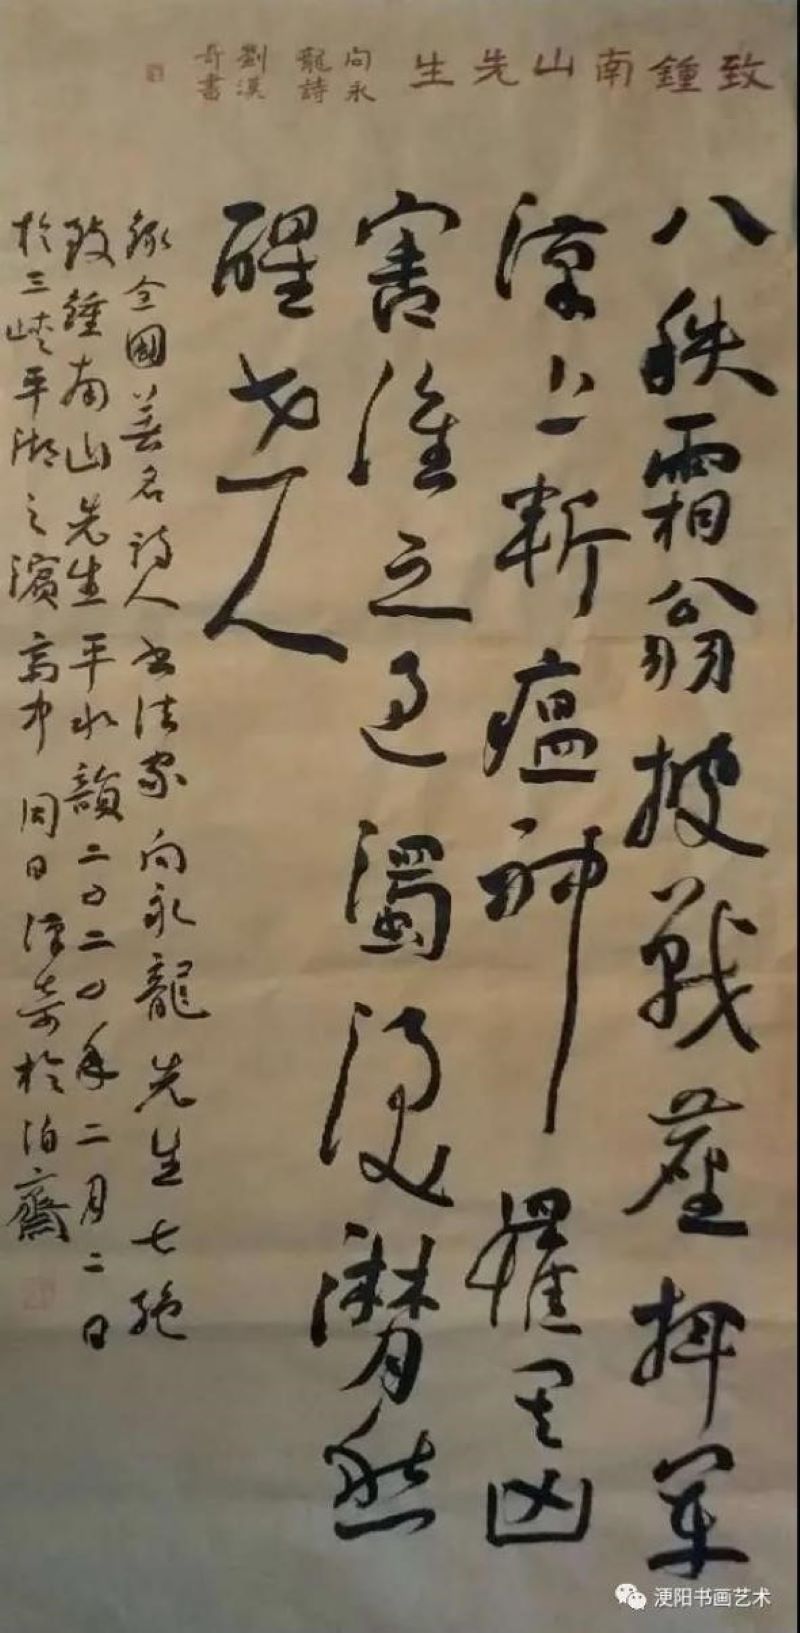 致鍾南山先生
向永
龍詩
劉漢
奇書
八秩霜翁披戰塵揮軍
漢上斬瘟神罹凶
害誰之過濁潸然
醒世人
錄全國著名詩人書法家向永龍先生七絕
致鍾南山先生平水韻二〇二〇年二月二日
於三峽平湖之濱高中同日漢奇於泊齋
梗阳书画艺术